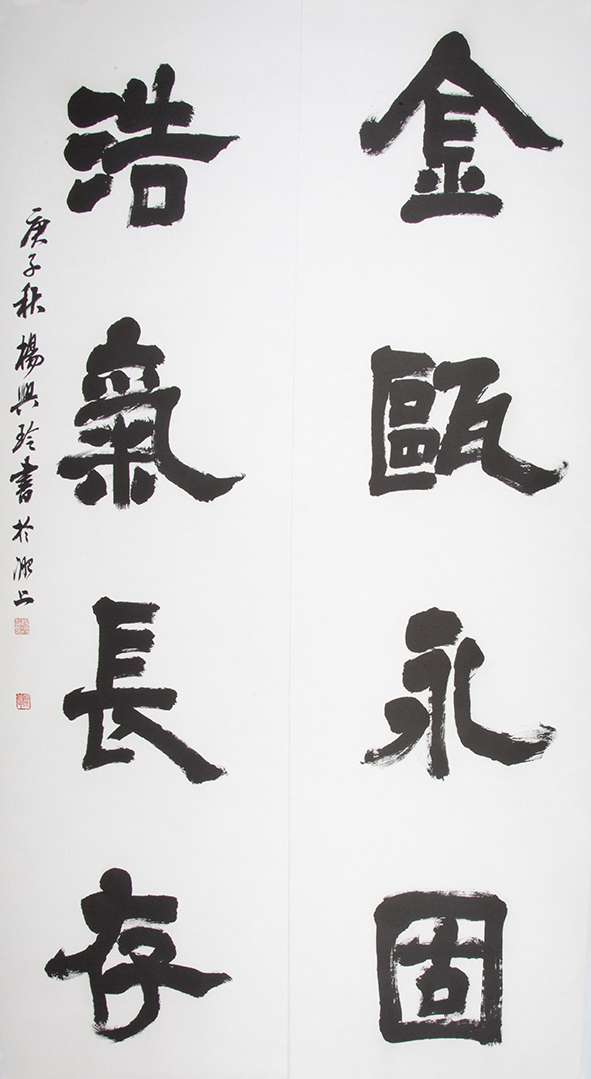 金甌永固
浩氣長存
庚子秋楊興玲書於沵上